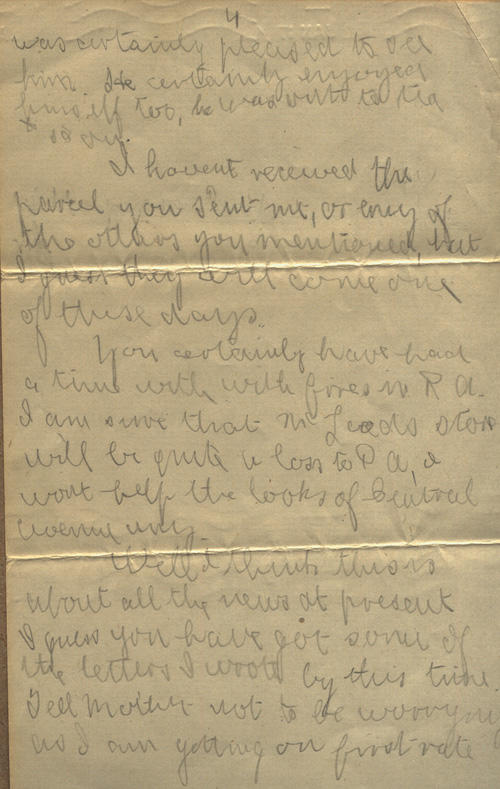 4
was certainly pleased to see
him. He certainly enjoyed
himself too, he was out to tea
I havent received the
parcel you sent me, or eny of
the others you mentioned, but
I guess they will come one
of these days.
You certainly have had
a time with with fires in P A.
I am sure that Mc Leods store
will be quite a loss to P A, &
wont help the looks of Central
Avenue any.
Well I think this is
about all the news at present
I guess you have got some of
the letters I wrote by this time.
Tell Mother not to be worrying
as I am getting on first rate